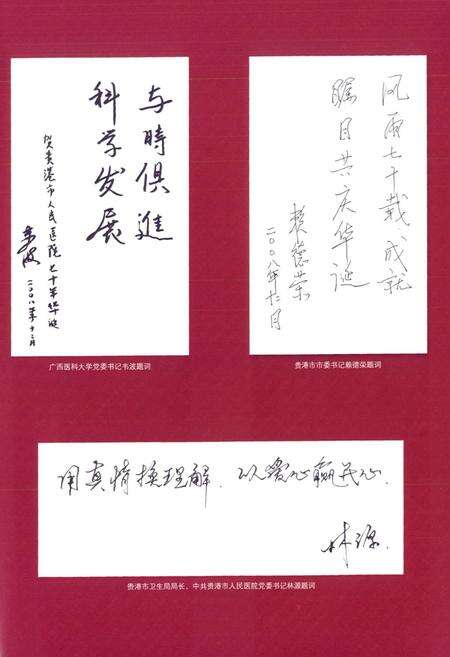 与時俱進
科学发展
贺贵港市人民医院七十年华诞
韦波
二〇〇八年十二月
广西医科大学党委书记韦波题词
风雨七十载,成就
瞩目共庆华诞
赖德荣
二〇〇八年十二月
贵港市市委书记赖德荣题词
用真情换理解,以爱心赢民心.
林源.
贵港市卫生局局长、中共贵港市人民医院党委书记林源题词